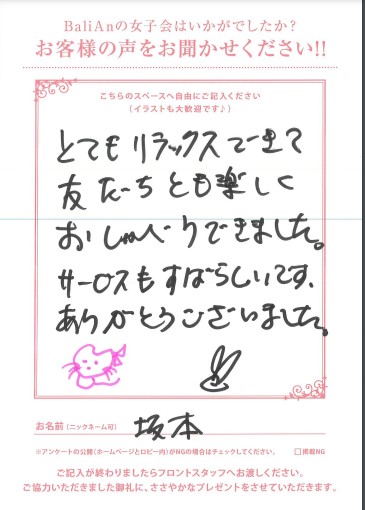 BaliAnの女子会はいかがでしたか?
お客様の声をお聞かせください!!
こちらのスペースへ自由にご記入ください
(イラストも大歓迎です♪)
とてもリラックスできて
友だちとも楽しく
おしゃべりできました。
サービスもすばらしいです。
ありがとうございました。
お名前(ニックネーム可) 坂本
※アンケートの公開(ホームページとロビー内)がNGの場合はチェックしてください。 □掲載NG
ご記入が終わりましたらフロントスタッフへお渡しください。
ご協力いただきました御礼に、ささやかなプレゼントをさせていただきます。